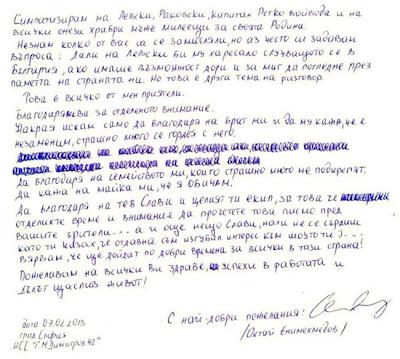 Симпатизирам на Левски, Раковски, капитан Петко войвода и на
всички онези храбри мъже милеещи за своята Родина.
Незнам колко от вас са се замисляли, но аз често си задавам
въпроса: Дали на Левски би му харесало случващото се в
България, ако имаше възможност дори и за миг да погледне през
паметта на страната ни. Но това е друга тема на разговор.
Това е всичко от мен приятели.
Благодаря ви за отделеното внимание.
Накрая искам само да благодаря на брат ми и да му кажа, че е
незаменим, страшно много се гордея с него.
Да благодаря на семейството ми, които страшно много ме подкрепят.
Да кажа на майка ми, че я Обичам.
Да благодаря на теб Слави и целият ти екип, за това че
отделихте време и внимание да прочетете това писмо пред
вашите зрители... а и още нещо Слави, нали не се сърдиш
като ти казах, че отдавна съм изгубил интерес към шоуто ти?...
Вярвам, че ще дойдат по добри времена за всички в тази страна!
Пожелавам на всички ви здраве, успехи в работата и
дълъг щаслив живот!
С най-добри пожелания:
дата 07.02.2013
град София
/Октай Енимехмедов/
НСГ "Г.М. Димитров 42"